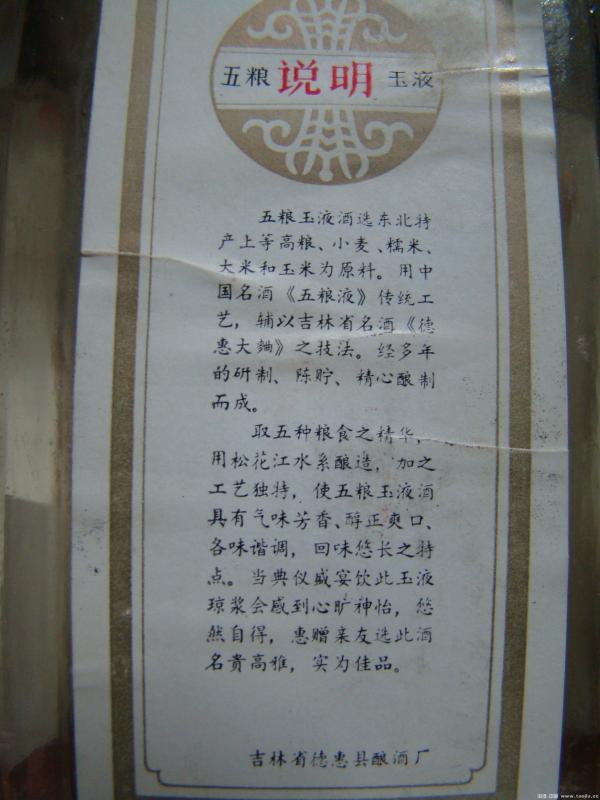 五粮 说明 玉液
五粮玉液酒选东北特
产上等高粮、小麦、糯米、
大米和玉米为原料。用中
国名酒《五粮液》传统工
艺，辅以吉林省名酒《德
惠大麯》之技法。经多年
的研制、陈贮、精心酿制
而成。
取五种粮食之精华，
用松花江水系酿造，加之
工艺独特，使五粮玉液酒
具有气味芳香、醇正爽口、
各味谐调，回味悠长之特
点。当典仪盛宴饮此玉液
琼浆会感到心旷神怡，悠
然自得，惠赠亲友选此酒
名贵高雅，实为佳品。
吉林省德惠县酿酒厂